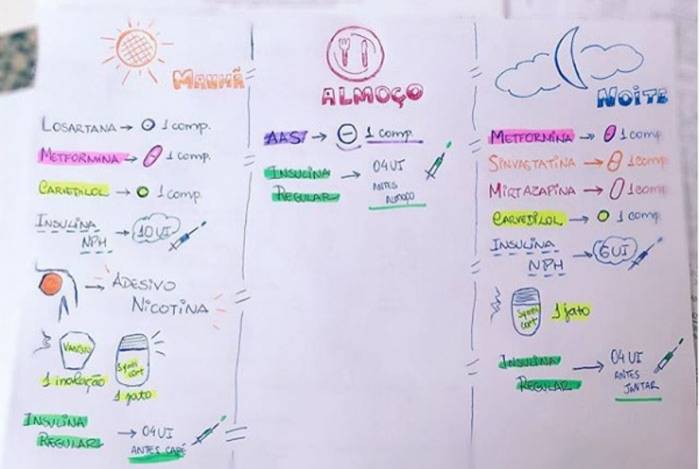 MANHÃ
LOSARTANA → 1 comp.
METFORMINA → 1 comp.
CARVEDILOL → 1 comp.
INSULINA
NPH → 10 UI
→ ADESIVO
NICOTINA
1 inalação
Symbi
cort
1 jato
INSULINA
REGULAR → 04 UI
ANTES CAFÉ
ALMOÇO
AAS → 1 comp.
INSULINA
REGULAR → 04 UI
ANTES
ALMOÇO
NOITE
METFORMINA → 1 comp.
SINVASTATINA → 1 comp.
MIRTAZAPINA → 1 comp.
CARVEDILOL → 1 comp.
INSULINA
NPH → 6 UI
Symbi
cort
1 jato
INSULINA
REGULAR → 04 UI
ANTES
JANTAR